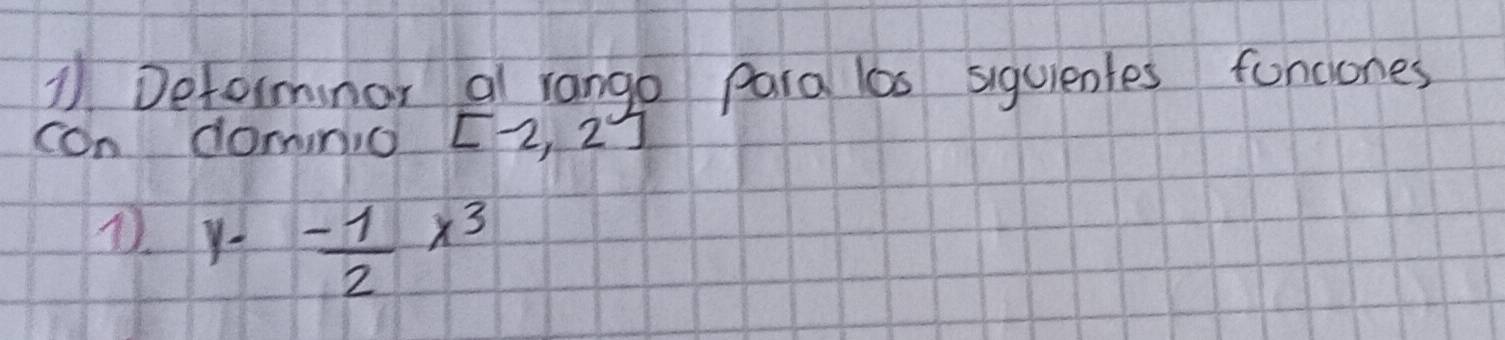 1) Determinar al rango para los siguientes funciones
con dominio [-2, 2]
1) y- -1/2 x³